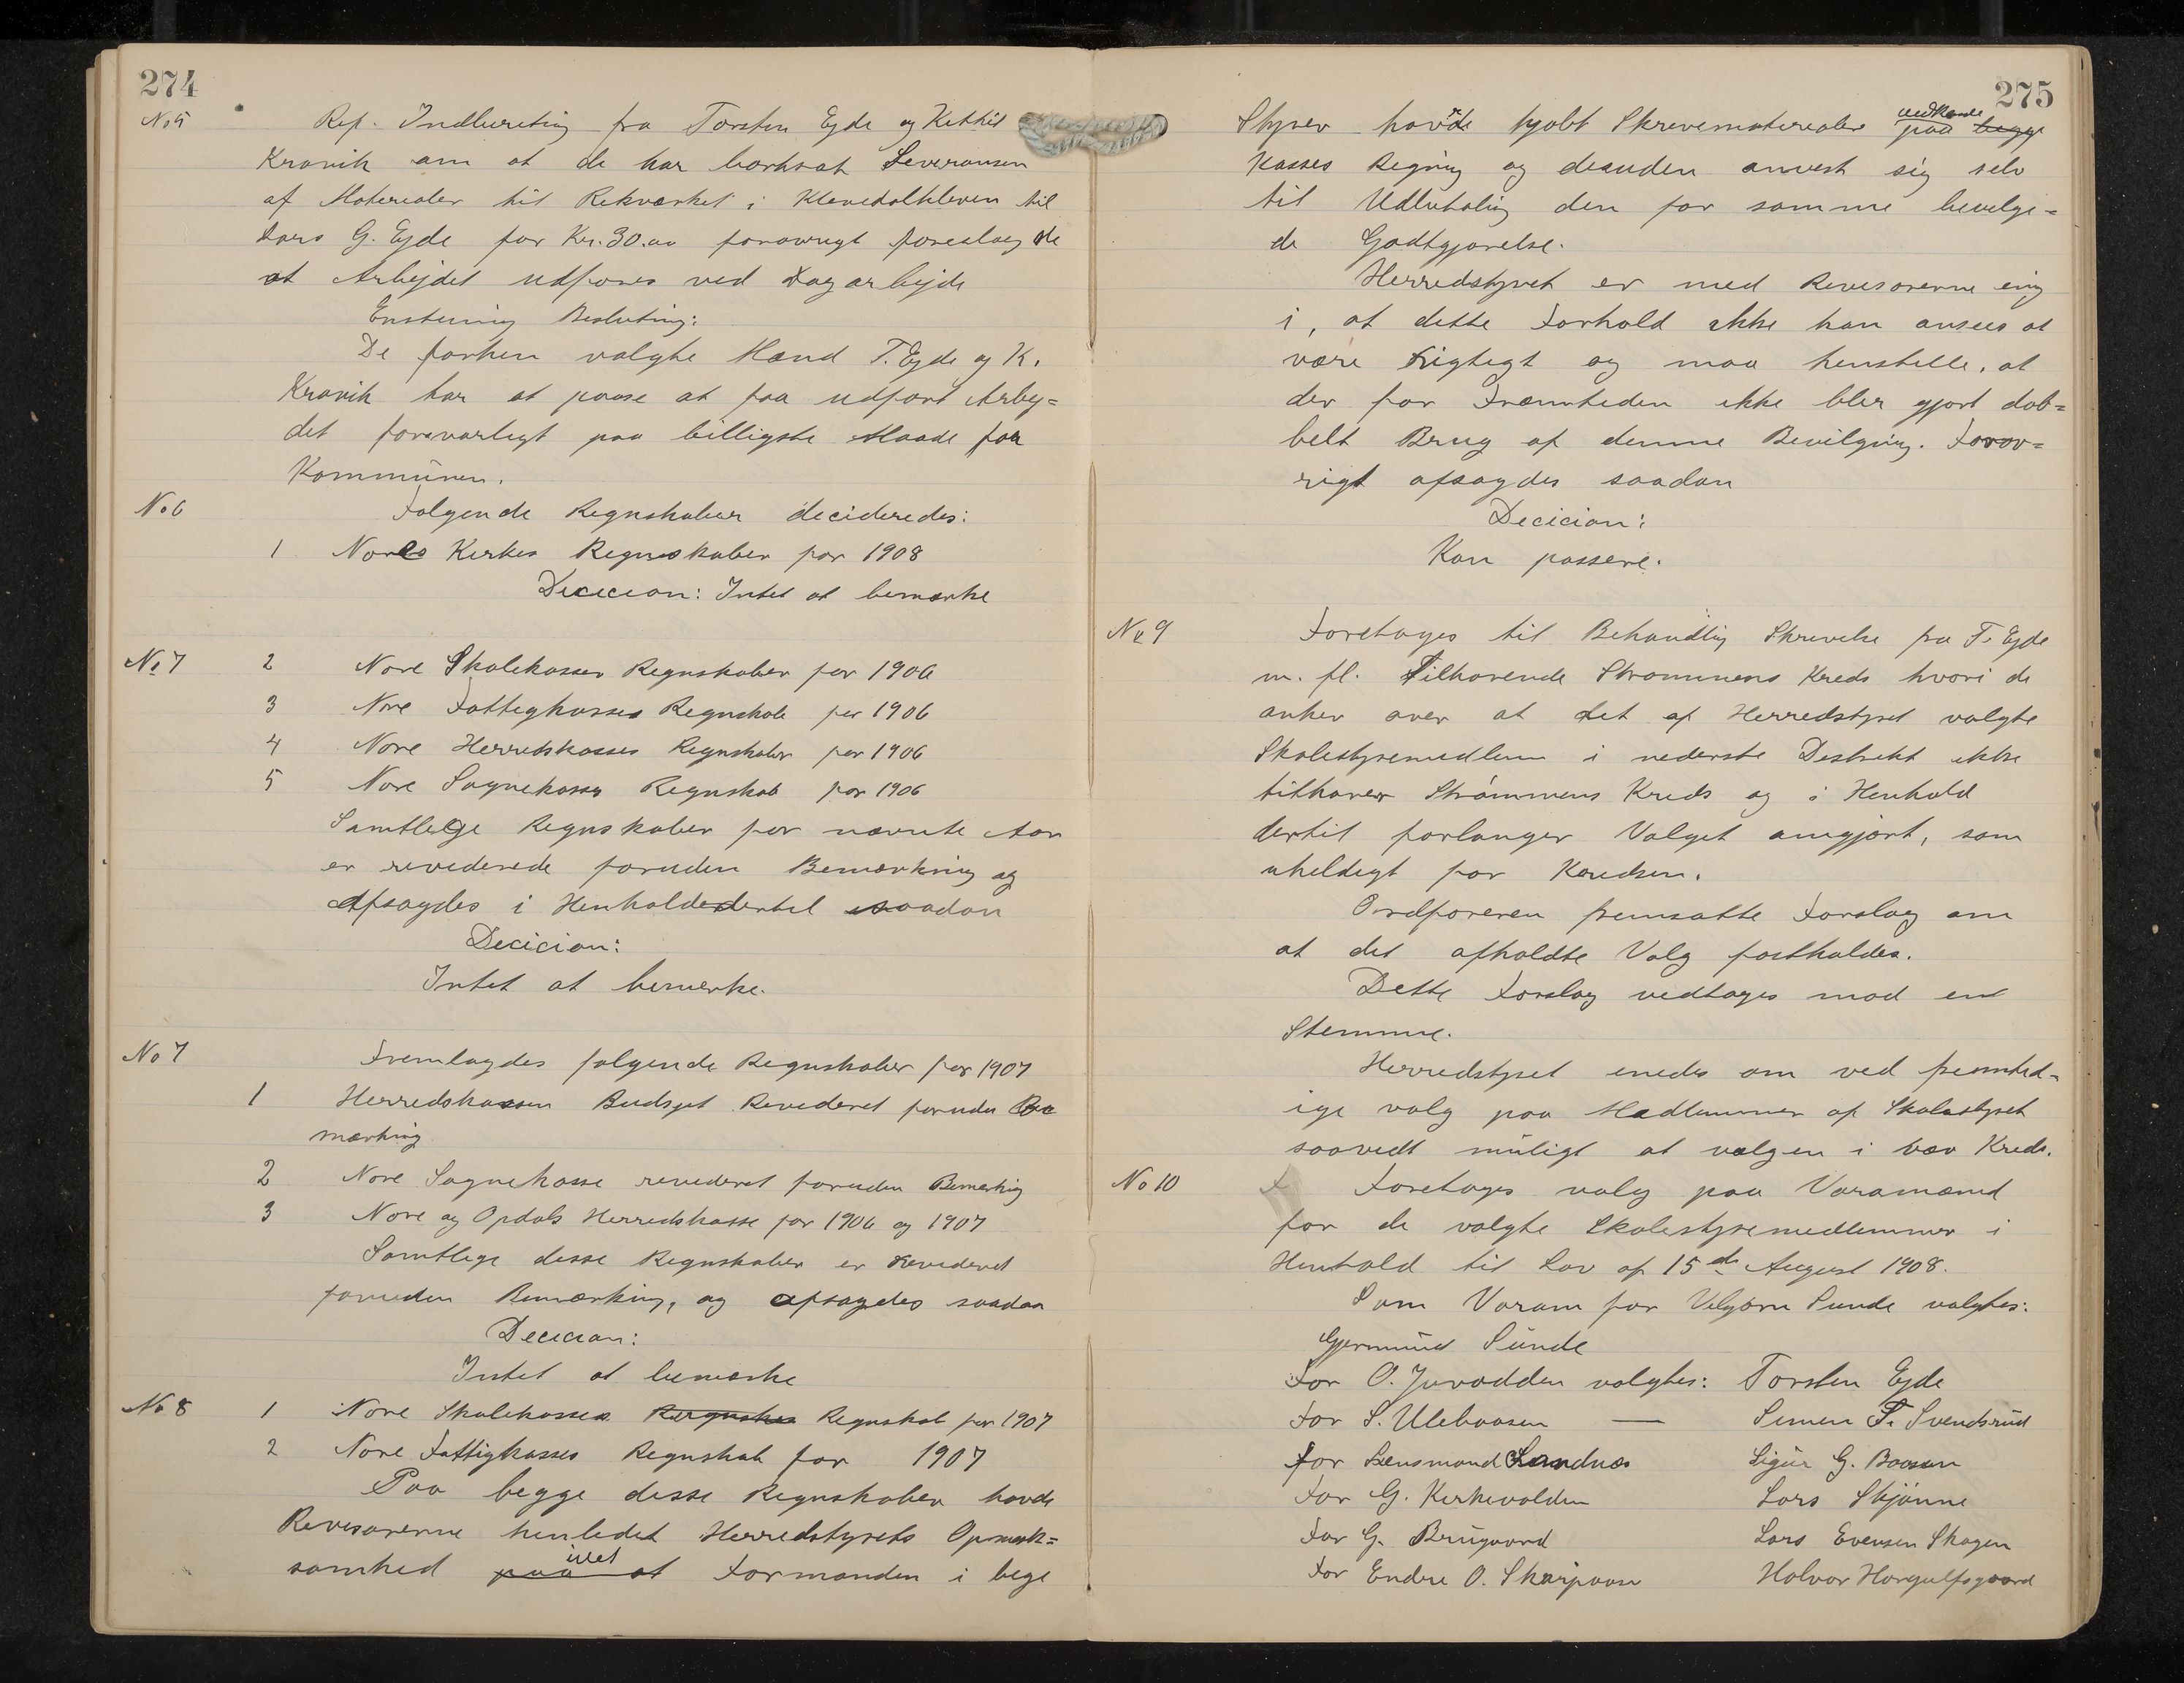 274
No 5 Ref. Indberetning fra Torsten Ejde og Kettil
Kravik om at de har bortsat Leveransen
af Materialer til Rekværket i Klevedalkleven til
Lars G. Ejde for Kr. 30.00 forøvrigt foreslog de
at Arbejdet udføres ved Dagarbejde
Enstemig Beslutning:
De forhen valgte Mænd T. Ejde og K.
Kravik har at passe at faa udført Arbej=
det forsvarligt paa billigste Maade for
Kommunen.
No 6 Følgende Regnskaber decideredes:
1 Nores Kirkes Regnskaber for 1908
Decicion: Intet at bemærke
No 7 2 Nore Skolekasses Regnskaber for 1906
3 Nore Fattigkasses Regnskab for 1906
4 Nore Herredskasses Regnskaber for 1906
5 Nore Sognekasses Regnskab for 1906
Samtlege Regnskaber for nævnte Aar
er reviderede foruden Bemærkning og
Afsagdes i Henhold dertel saadan
Decicion:
Intet at bemerke.
No 7 Fremlagdes følgende Regnskaber for 1907
1 Herredskassen Budsjet Revideret foruden Be
mærkning
2 Nore Sognekasse revideret foruden Bemærkning
3 Nore og Opdals Herredskasse for 1906 og 1907
Samtlige disse Regnskaber er revideret
foruden Bemærkning, og afsagdes saadan
Decicion:
Intet at bemærke
No 8 1 Nore Skolekasses Regnskab for 1907
2 Nore Fattigkasses Regnskab for 1907
Paa begge disse Regnskaber havde
Revisorerne henledet Herredstyrets Opmærk=
somhed paa at Formanden i bege
275
Styrer havde kjøbt Skrivematerialer paa vedkomde begge
Kasses Regning og desuden anvist sig selv
til Udbetaling den for samme bevilge=
de Godtgjørelse.
Herredstyret er med Revisorerne enig
i, at dette Forhold ikke kan ansees at
være rigtigt og maa henstille, at
der for Fremtiden ikke blir gjort dob=
belt Brug af denne Bevilgning. Forøv=
rigt afsagdes saadan
Decicion:
Kan passere.
No 9 Foretoges til Behandling Skrivelse fra T. Ejde
m. fl. Tilhørende Strømmens Kreds hvori de
anker over at det af Herredstyret valgte
Skolestyremedlem i nederste Destrikt ikke
tilhører Strømmens Kreds og i Henhold
dertil forlanger Valget omgjort, som
uheldigt for Kredsen.
Ordføreren fremsatte Forslag om
at det afholdte Valg fastholdes.
Dette Forslag vedtages mod en
Stemme.
Herredstyret enedes om ved fremtid=
ige valg paa Medlemmer af Skolestyret
saavidt muligt at vælgen i hver Kreds.
No 10 Foretages valg paa Varamænd
for de valgte Skolestyremedlemmer i
Henhold til Lov af 15de August 1908.
Som Varam for Vebjørn Sunde valgtes:
Gjermund Sunde
For O. Juvodden valgtes: Torsten Ejde
For S. Uleboasen — Simen T. Svendsrud
for Lensmand Landnes Sigur G. Baasen
For G. Kirkevolden Lars Skjønne
For G. Brugaard Lars Evensen Skogen
For Endre O. Skarpaas Halvor Horgulfsgaard